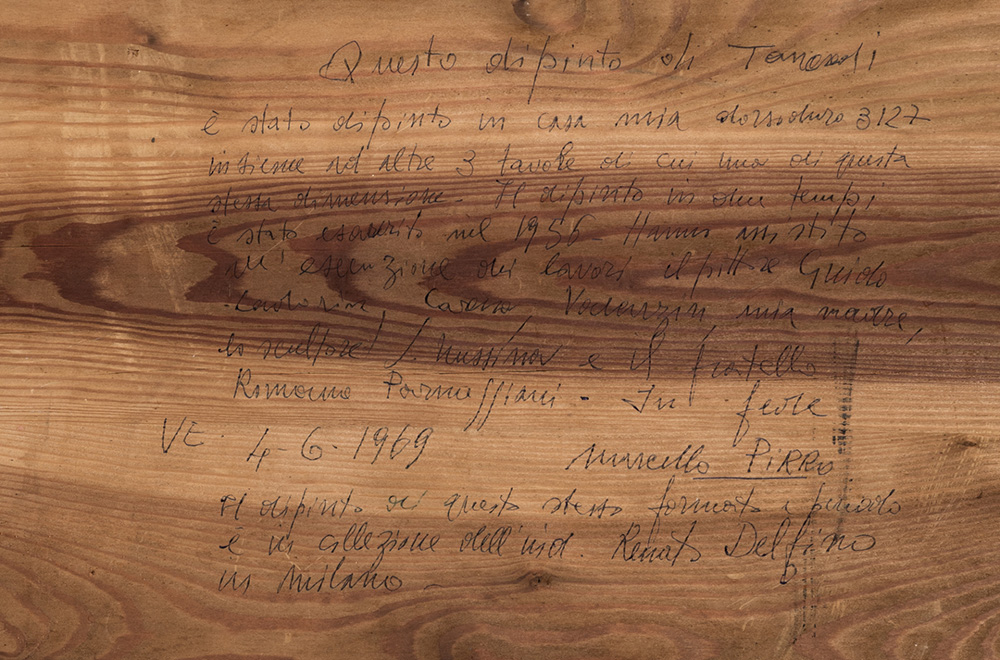 Questo dipinto di Tancredi
è stato dipinto in casa mia dorsoduro 3127
insieme ad altre 3 tavole di cui una di questa
stessa dimensione. Il dipinto in due tempi
è stato eseguito nel 1956 Hanno assistito
all'esecuzione dei lavori il pittore Guido
mia madre,
lo scultore e il fratello
Romano Parmeggiani - In fede
VE 4-6-1969
Marcello PIRRO
Il dipinto di questo stesso formato e periodo
è in collezione dell'ind. Renato Delfino
in Milano -